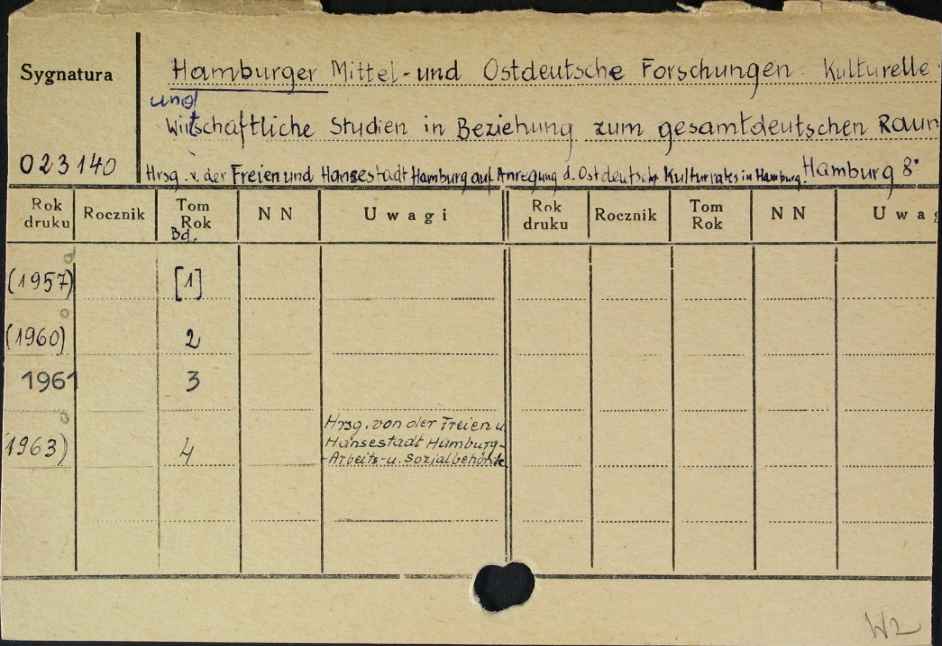 Sygnatura
Hamburger Mittel- und Ostdeutsche Forschungen. Kulturelle
und
Wirtschaftliche Studien in Beziehung zum gesamtdeutschen Raum
023140
Hrsg. v. der Freien und Hansestadt Hamburg auf Anregung d. Ostdeutsche Kulturrates in Hamburg. Hamburg 8°
Rok druku Rocznik Tom Rok NN Uwagi Rok druku Rocznik Tom Rok NN Uwag
Bd.
(1957) [1]
(1960) 2
1961 3
Hrsg. von der Freien u.
1963) 4 Hansestadt Hamburg-
-Arbeits- u. Sozialbehörde
W2